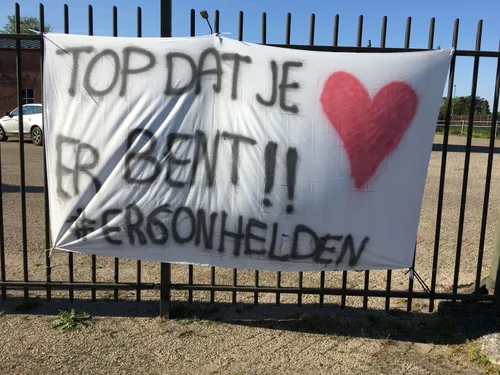 TOP DAT JE
ER BENT!!
#ERGONHELDEN